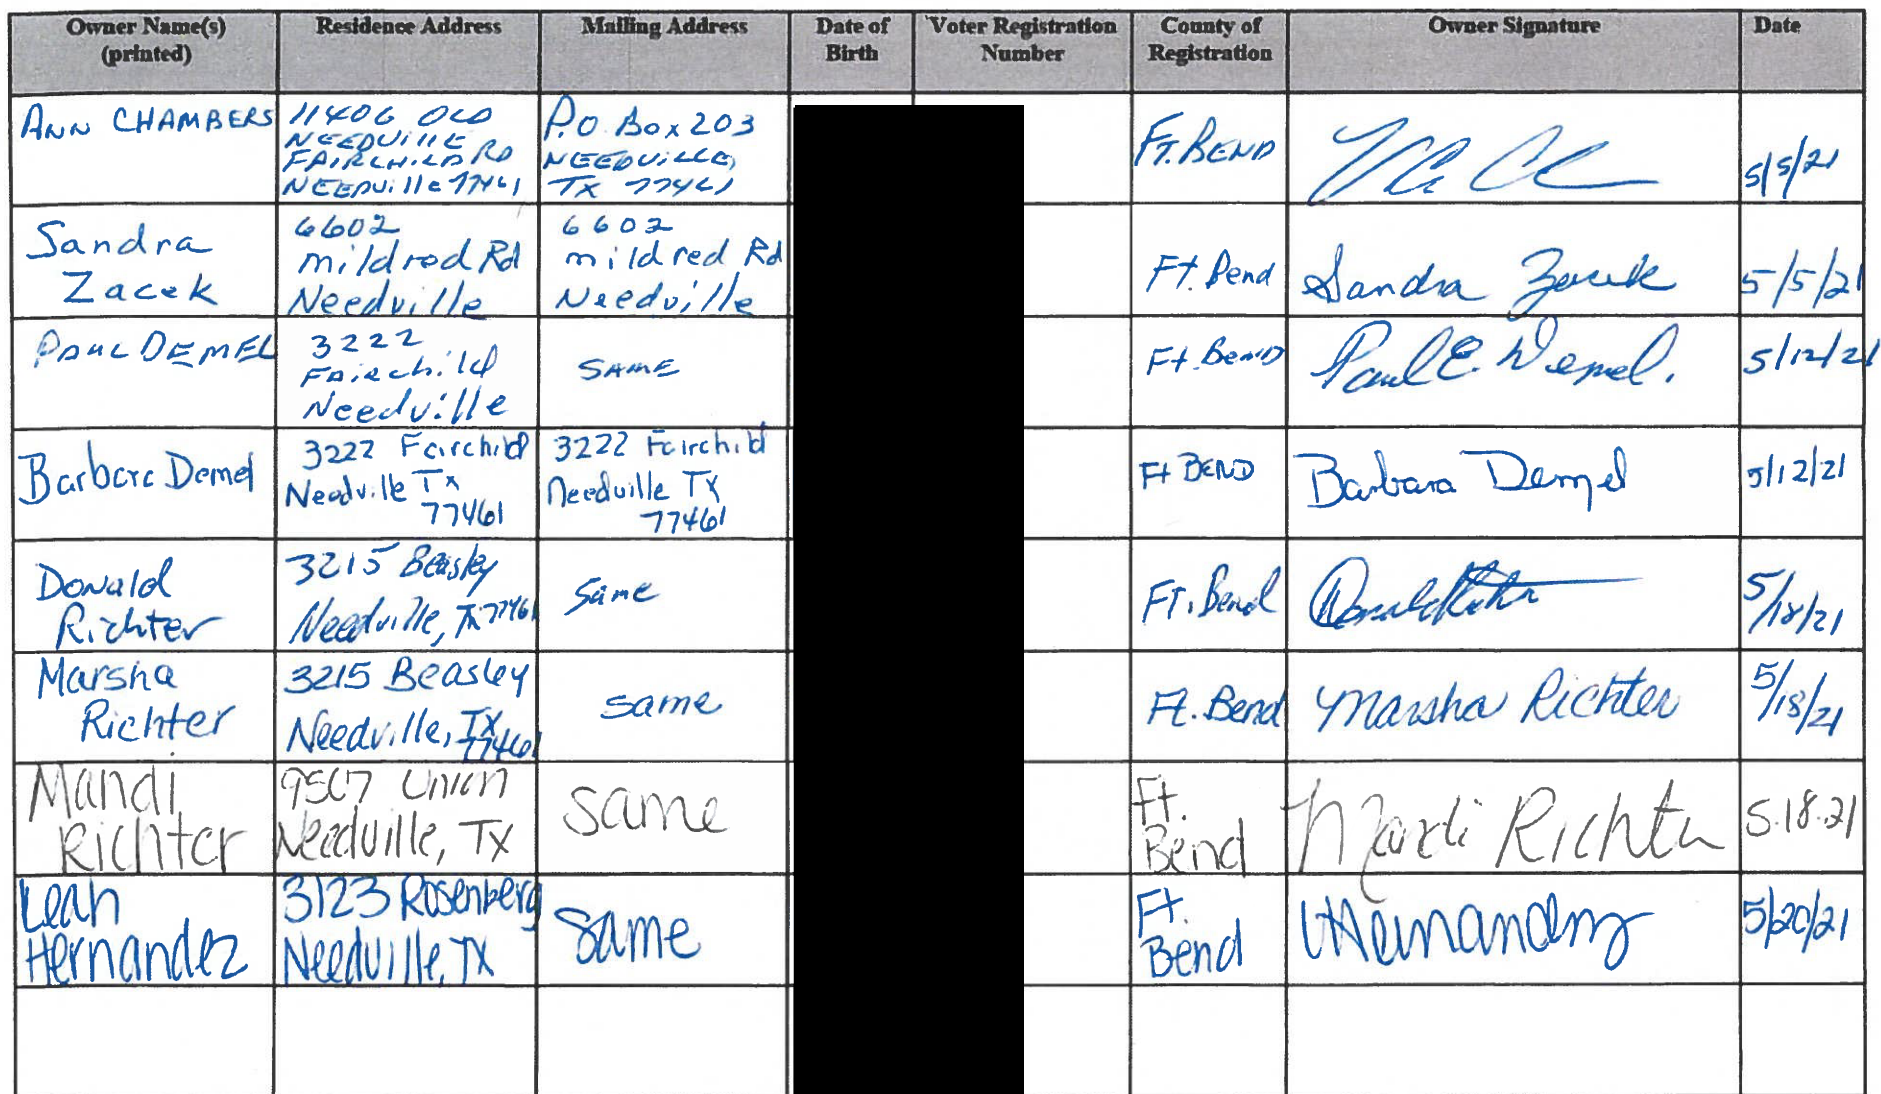 Owner Name(s) (printed) Residence Address Mailing Address Date of Birth Voter Registration Number County of Registration Owner Signature Date
ANN CHAMBERS
11406 OLD
NEEDVILLE
FAIRCHILD RD
NEEDVille 77461
P.O. Box 203
NEEDVILLE,
TX 77461
FT. BEND
5/5/21
Sandra
Zacek
6602
mildred Rd
Needville
6602
mildred Rd
Needville
Ft. Bend
Sandra Zacek
5/5/21
PAUL DEMEL
3222
FAirchild
Needville
SAME
Ft. BenD
Paul E. Demel.
5/12/21
Barbara Demel
3222 Fairchild
Needville Tx
77461
3222 Fairchild
Needville TX
77461
Ft BEND
Barbara Demel
5/12/21
Donald
Richter
3215 Beasley
Needville, Tx 77461
Same
FT. Bend
Donald Richter
5/18/21
Marsha
Richter
3215 Beasley
Needville, TX
77461
same
Ft. Bend
Marsha Richter
5/18/21
Mandi
Richter
9507 Union
Needville, TX
same
Ft.
Bend
Mandi Richter
5.18.21
Leah
Hernandez
3123 Rosenberg
Needville, TX
Same
Ft.
Bend
LHernandez
5/20/21